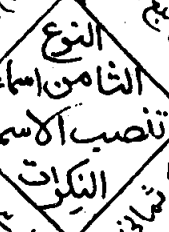 النوع
الثامن اسما
تنصب الاسم
النكرات